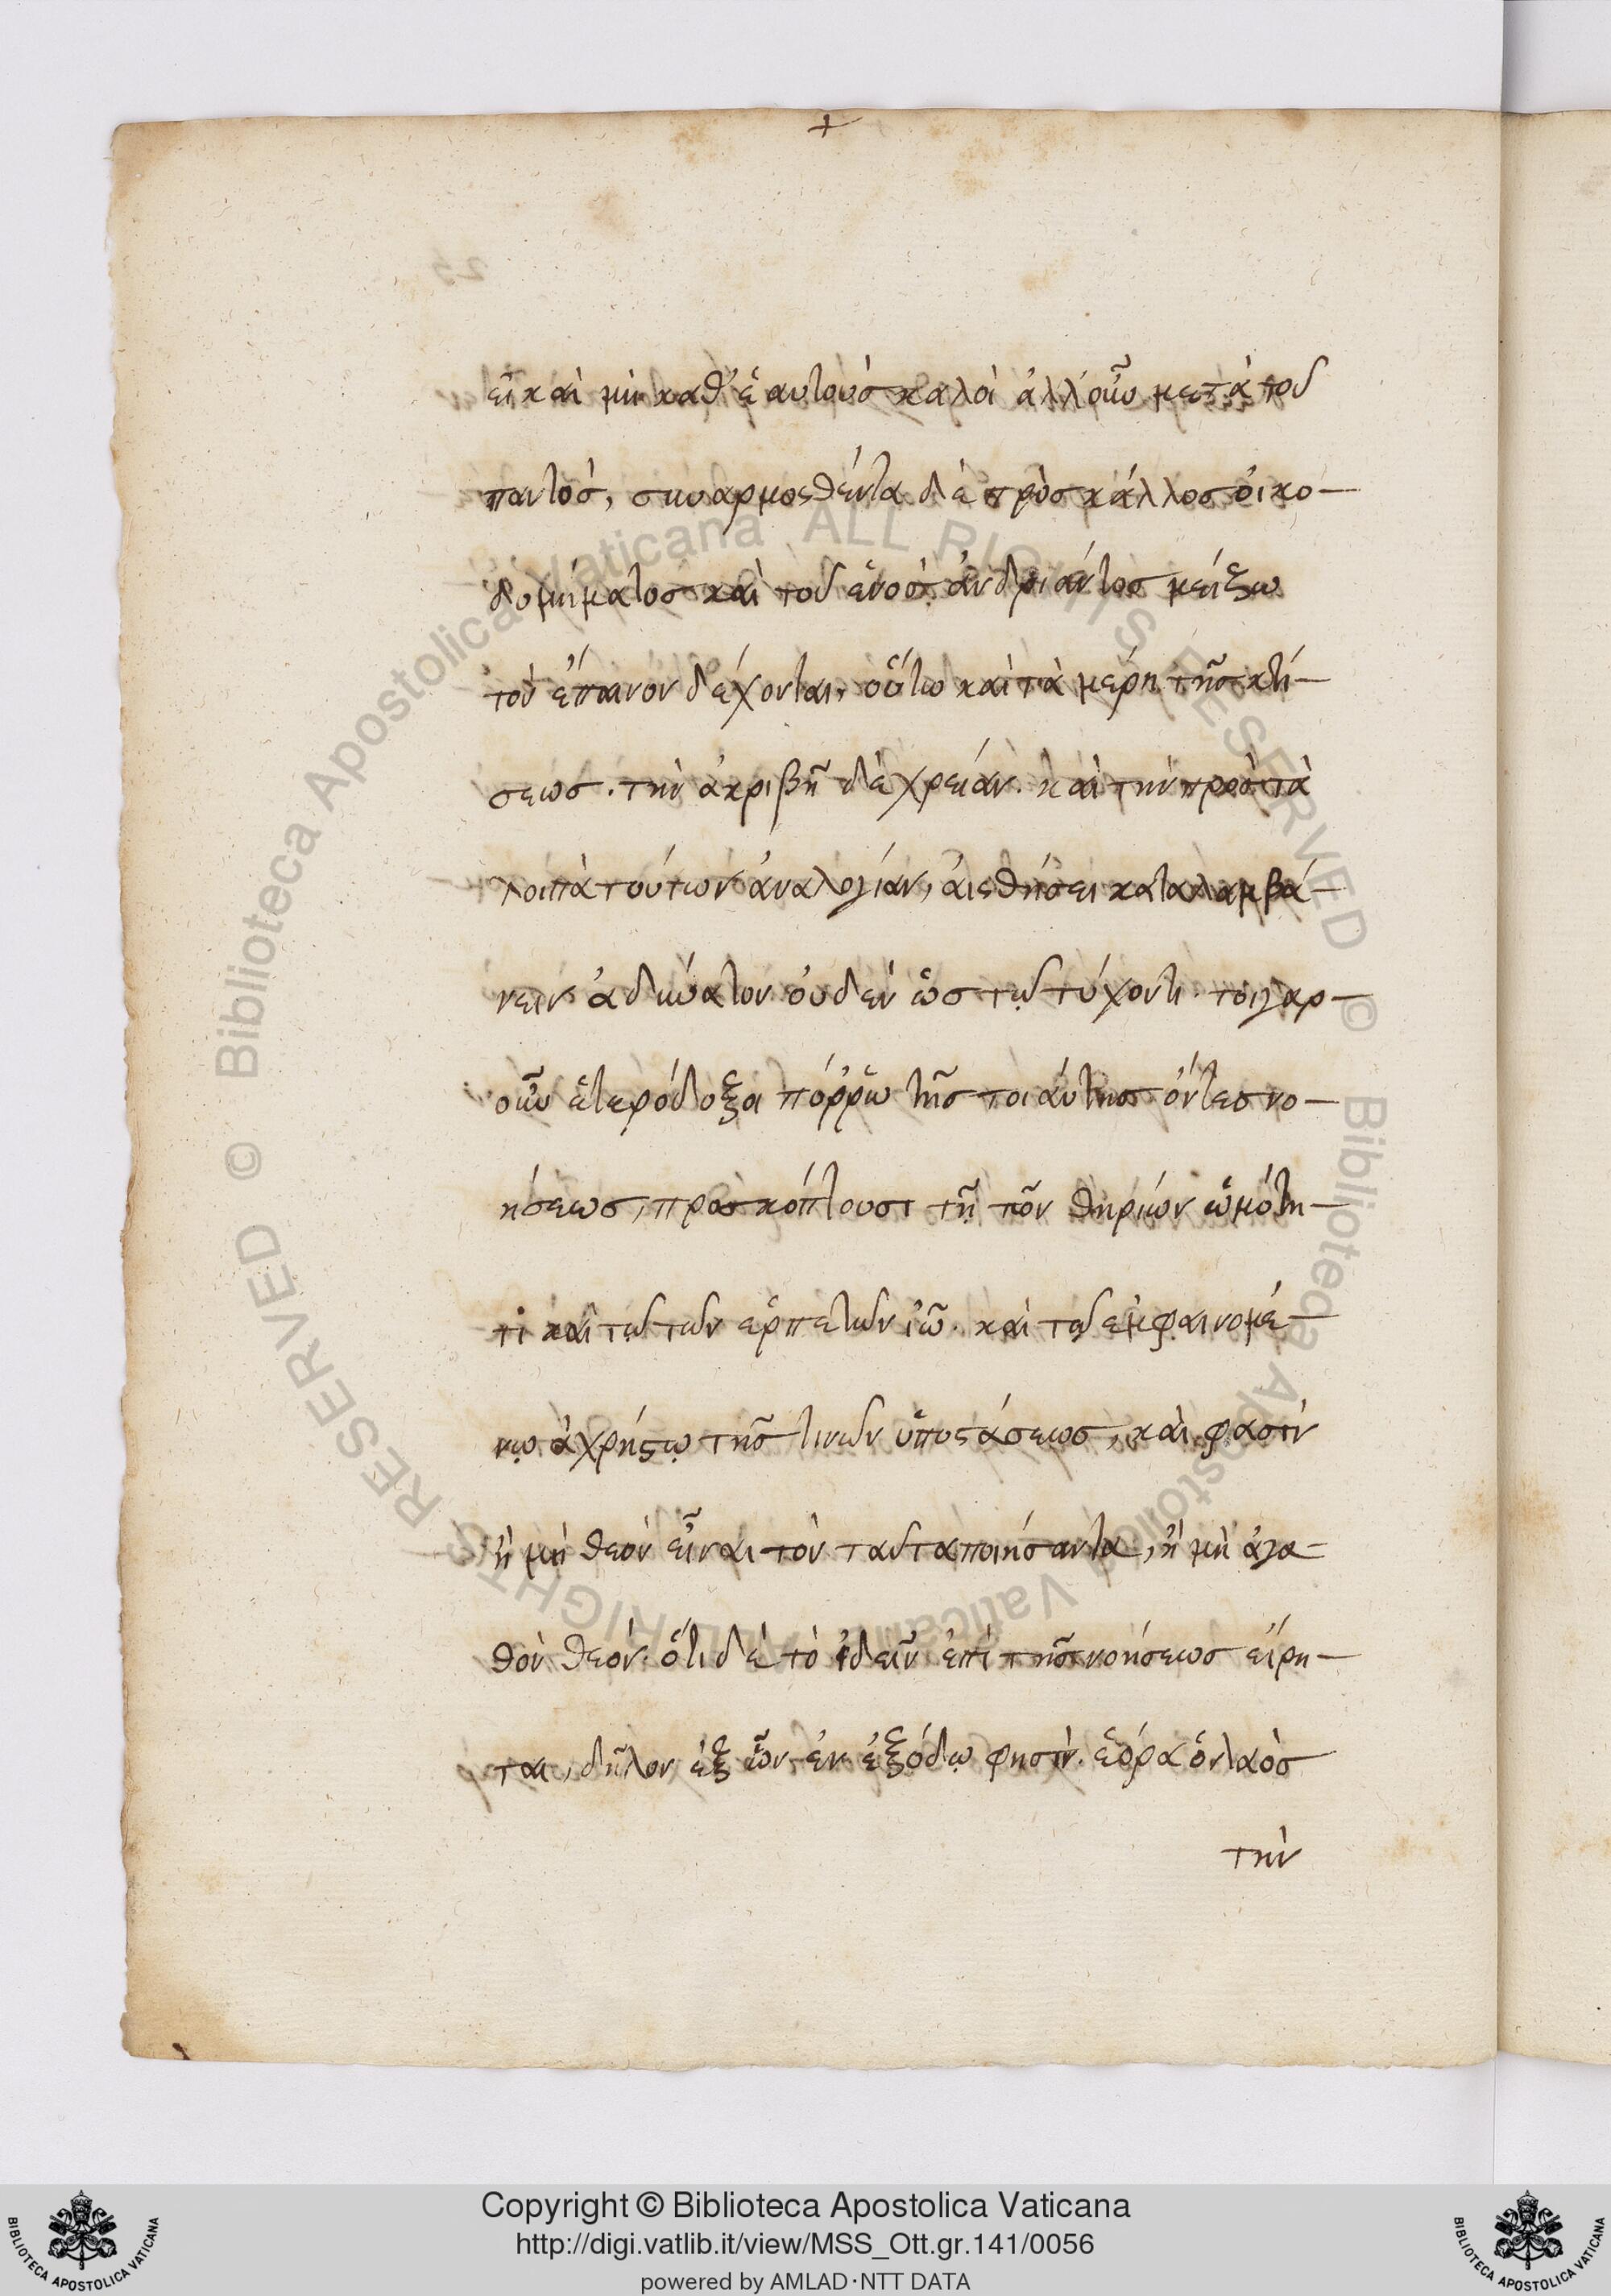 +
εἰ καὶ μὴ καθ' ἑαυτοὺσ καλοὶ ἀλλ' οὖν μετὰ τοῦ
παντὸσ, συναρμοσθέντα δὲ πρὸσ κάλλοσ οἰκο-
δομήματοσ καὶ τοῦ ἑνὸσ ἀνδριάντοσ μείζω
τὸν ἔπαινον δέχονται, οὕτω καὶ τὰ μέρη τῆσ κτί-
σεωσ. τὴν ἀκριβῆ δὲ χρείαν. καὶ τὴν πρὸσ τὰ
λοιπὰ τούτων ἀναλογίαν, αἰσθήσει καταλαμβά-
νειν ἀδύνατον οὐδὲν ὡσ τῷ τύχοντι. τοιγαρ-
οῦν ἑτερόδοξοι πόῤῥω τῆσ τοιαύτησ ὄντεσ νο-
ήσεωσ, προσκόπτουσι τῇ τῶν θηρίων ὠμότη-
τι καὶ τῷ τῶν ἑρπετῶν ἰῷ. καὶ τῷ ἐμφαινομέ-
νῳ ἀχρήστῳ τῆσ τινῶν ὑποστάσεωσ, καὶ φασὶν
ἢ μὴ θεὸν εἶναι τὸν ταῦτα ποιήσαντα, ἢ μὴ ἀγα-
θὸν θεόν. ὅτι δὲ τὸ ἰδεῖν ἐπὶ τῆσ νοήσεωσ εἴρη-
ται, δῆλον ἐξ ὧν ἐν ἐξόδῳ φησὶν. ἑόρα ὁ λαὸσ
τὴν
Copyright © Biblioteca Apostolica Vaticana
http://digi.vatlib.it/view/MSS_Ott.gr.141/0056
powered by AMLAD·NTT DATA
BIBLIOTECA APOSTOLICA VATICANA
BIBLIOTECA APOSTOLICA VATICANA
© Biblioteca Apostolica Vaticana ALL RIGHTS RESERVED © Biblioteca Apostolica Vaticana ALL RIGHTS RESERVED